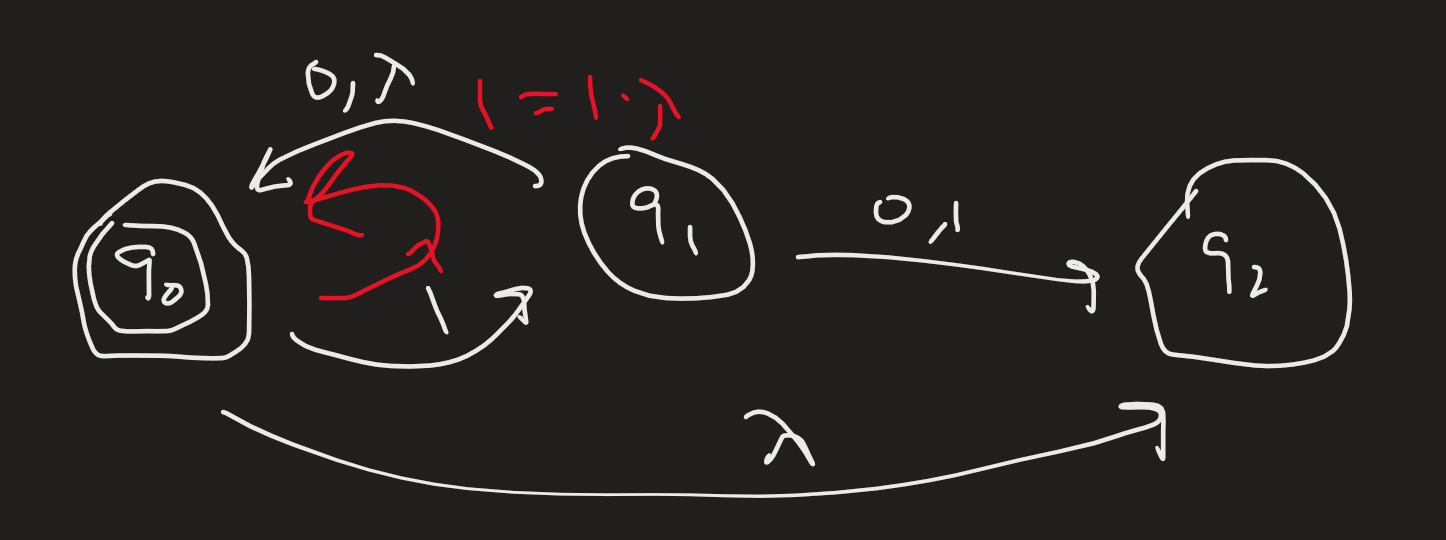 0,λ
1 = 1·λ
q0
q1
0,1
q2
1
λ